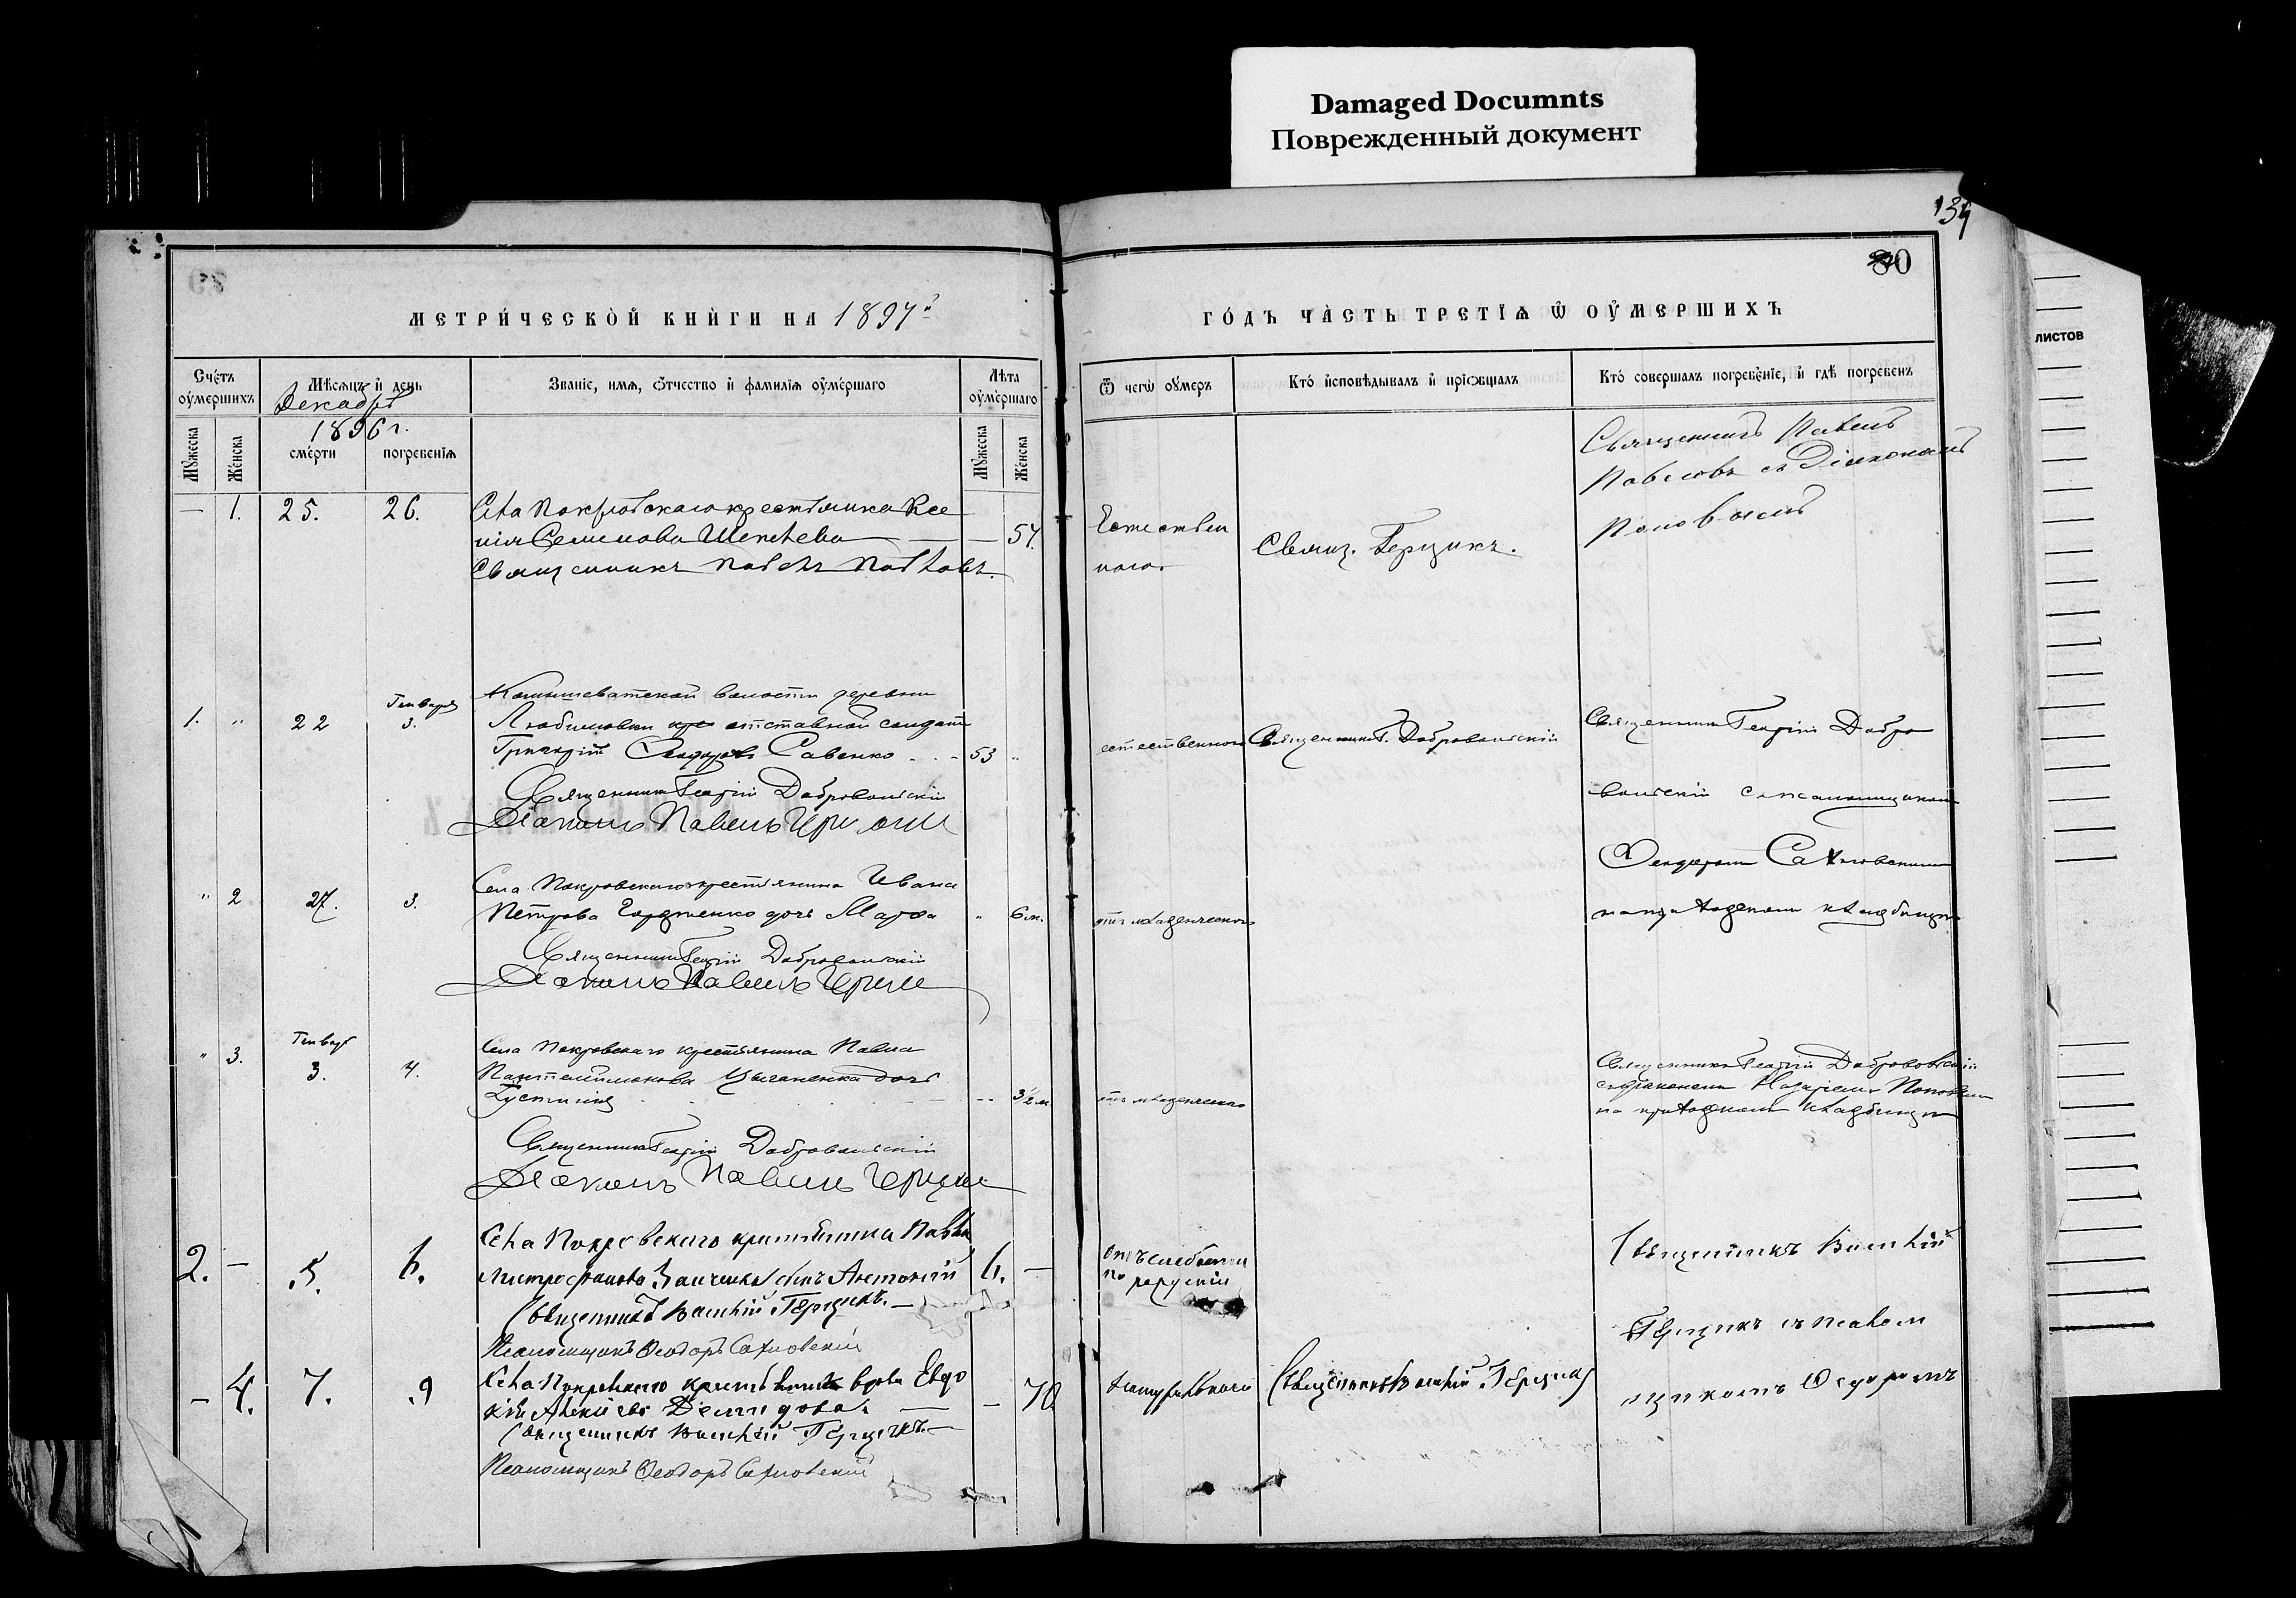 Damaged Documnts
Поврежденный документ
листов
80
МЕТРИ́ЧЕСКОЙ КНИ́ГИ НА 1897
ГО́ДЪ ЧА́СТЬ ТРЕТІѦ Ѡ ОУ҆МЕРШИХЪ
Сче́тъ оу҆ме́ршихъ
Мужеска
Же́нска
Мѣсѧцъ и҆ день
Декабрь
1896 г.
сме́рти
погребе́нїѧ
Званїе, имѧ, ѻтчество и҆ фамилїѧ оу҆ме́ршаго
Лѣта оу҆ме́ршаго
Мужеска
Же́нска
Ѿ чегѡ оу҆меръ
Кто̀ и҆сповѣдывалъ и҆ прїѡбщалъ
Кто̀ соверша́лъ погребе́нїе, и҆ гдѣ̀ погребе́нъ
— 1. 25. 26.
Села Покровскаго крестьянка Ксе
нія Семенова
— 57.
Священникъ Павелъ Павловъ.
Естествен
наго.
Священ. Герцикъ.
Священникъ Павелъ
Павловъ съ Діакономъ
Поповымъ
1. " 22
Генваря
3.
волости деревни
Любимовки отставной солдатъ
Григорій Савенко 53 "
Священникъ Георгій Добровольскій
Діаконъ Павелъ
естественной
Священникъ Г. Добровольскій
Священникъ Георгій Добро
вольскій съ псаломщикомъ
Ѳеодоромъ Сахновскимъ
на приходскомъ кладбищѣ
" 2 27. 3.
Села Покровскаго крестьянина Ивана
Петрова Гордіенко дочь Марѳа " 6 м.
Священникъ Георгій Добровольскій
Діаконъ Павелъ
отъ младенческого
" 3.
Генваря
3. 4.
Села Покровскаго крестьянина Павла
Пантелеймонова Цыганенка дочь
Іустинія 3 1/2 м
Священникъ Георгій Добровольскій
Діаконъ Павелъ
отъ младенческаго
Священникъ Георгій Добровольскій
съ діакономъ Назаріемъ Поповымъ
на приходскомъ кладбищѣ
2. — 5. 6.
Села Покровскаго крестьянина Павла
Заиченка сынъ Антоній 6. —
Священникъ Василій Герцикъ. —
Псаломщикъ Ѳеодоръ Сахновскій
Священникъ Василій
Герцикъ съ псалом
щикомъ Ѳедоромъ
— 4. 7. 9
Села Покровскаго вдова Евдо
кія Алексіева Демидова. — 70.
Священникъ Василій Герцикъ. —
Псаломщикъ Ѳеодоръ Сахновскій
натуральной
Священникъ Василій Герцикъ